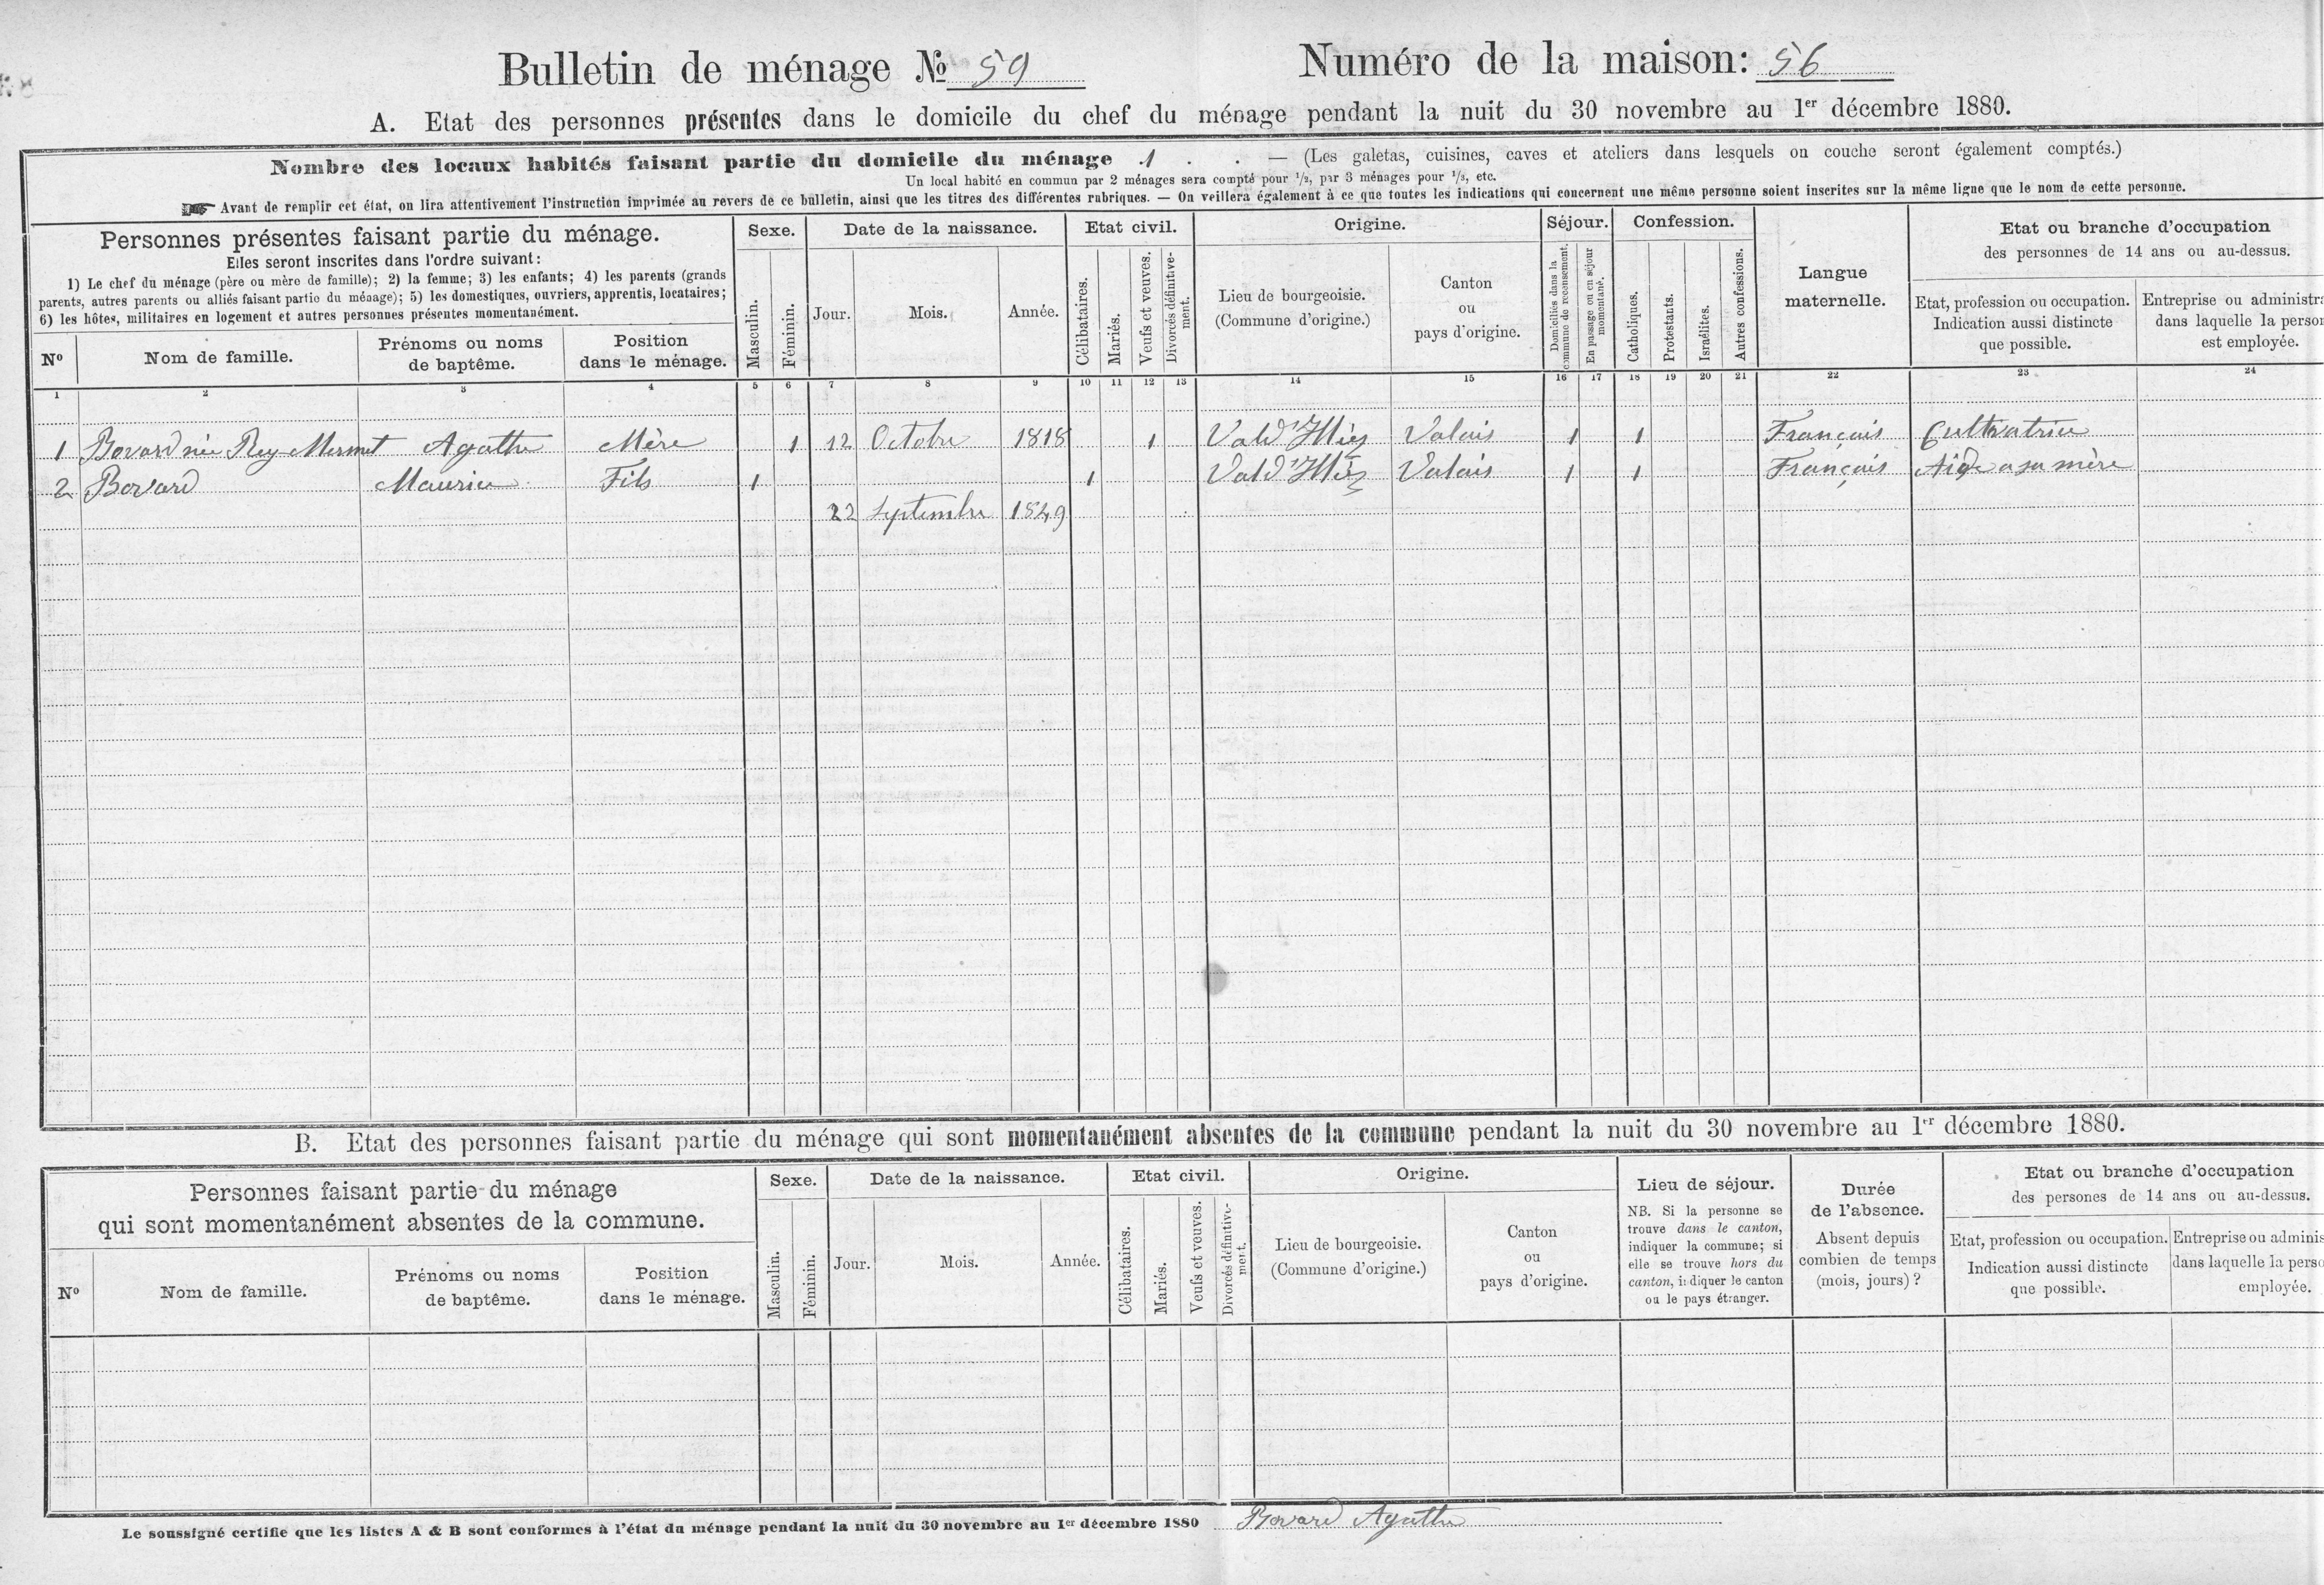 Bulletin de ménage № 59
Numéro de la maison: 56
A. Etat des personnes présentes dans le domicile du chef du ménage pendant la nuit du 30 novembre au 1er décembre 1880.
Nombre des locaux habités faisant partie du domicile du ménage 1 . . — (Les galetas, cuisines, caves et ateliers dans lesquels on couche seront également comptés.)
Un local habité en commun par 2 ménages sera compté pour 1/2, par 3 ménages pour 1/3, etc.
☛ Avant de remplir cet état, on lira attentivement l'instruction imprimée au revers de ce bulletin, ainsi que les titres des différentes rubriques. — On veillera également à ce que toutes les indications qui concernent une même personne soient inscrites sur la même ligne que le nom de cette personne.
Personnes présentes faisant partie du ménage.
Elles seront inscrites dans l'ordre suivant:
1) Le chef du ménage (père ou mère de famille); 2) la femme; 3) les enfants; 4) les parents (grands
parents, autres parents ou alliés faisant partie du ménage); 5) les domestiques, ouvriers, apprentis, locataires;
6) les hôtes, militaires en logement et autres personnes présentes momentanément.
No
Nom de famille.
Prénoms ou noms
de baptême.
Position
dans le ménage.
Sexe.
Masculin.
Féminin.
Date de la naissance.
Jour.
Mois.
Année.
Etat civil.
Célibataires.
Mariés.
Veufs et veuves.
Divorcés définitive-
ment.
Origine.
Lieu de bourgeoisie.
(Commune d'origine.)
Canton
ou
pays d'origine.
Séjour.
Domiciliés dans la
commune de recensement.
En passage ou en séjour
momentané.
Confession.
Catholiques.
Protestants.
Israélites.
Autres confessions.
Langue
maternelle.
Etat ou branche d'occupation
des personnes de 14 ans ou au-dessus.
Etat, profession ou occupation.
Indication aussi distincte
que possible.
Entreprise ou administra
dans laquelle la person
est employée.
1 2 3 4 5 6 7 8 9 10 11 12 13 14 15 16 17 18 19 20 21 22 23 24
1 Bovard née Rey-Mermet Agathe Mère 1 12 Octobre 1818 1 Vald'Illiez Valais 1 1 Français Cultivatrice
2 Bovard Maurice Fils 1 1 Vald'Illiez Valais 1 1 Français Aide a sa mère
22 Septembre 1849
B. Etat des personnes faisant partie du ménage qui sont momentanément absentes de la commune pendant la nuit du 30 novembre au 1er décembre 1880.
Personnes faisant partie du ménage
qui sont momentanément absentes de la commune.
No
Nom de famille.
Prénoms ou noms
de baptême.
Position
dans le ménage.
Sexe.
Masculin.
Féminin.
Date de la naissance.
Jour.
Mois.
Année.
Etat civil.
Célibataires.
Mariés.
Veufs et veuves.
Divorcés définitive-
ment.
Origine.
Lieu de bourgeoisie.
(Commune d'origine.)
Canton
ou
pays d'origine.
Lieu de séjour.
NB. Si la personne se
trouve dans le canton,
indiquer la commune; si
elle se trouve hors du
canton, indiquer le canton
ou le pays étranger.
Durée
de l'absence.
Absent depuis
combien de temps
(mois, jours)?
Etat ou branche d'occupation
des persones de 14 ans ou au-dessus.
Etat, profession ou occupation.
Indication aussi distincte
que possible.
Entreprise ou adminis
dans laquelle la perso
employée.
Le soussigné certifie que les listes A & B sont conformes à l'état du ménage pendant la nuit du 30 novembre au 1er décembre 1880 Bovard Agathe